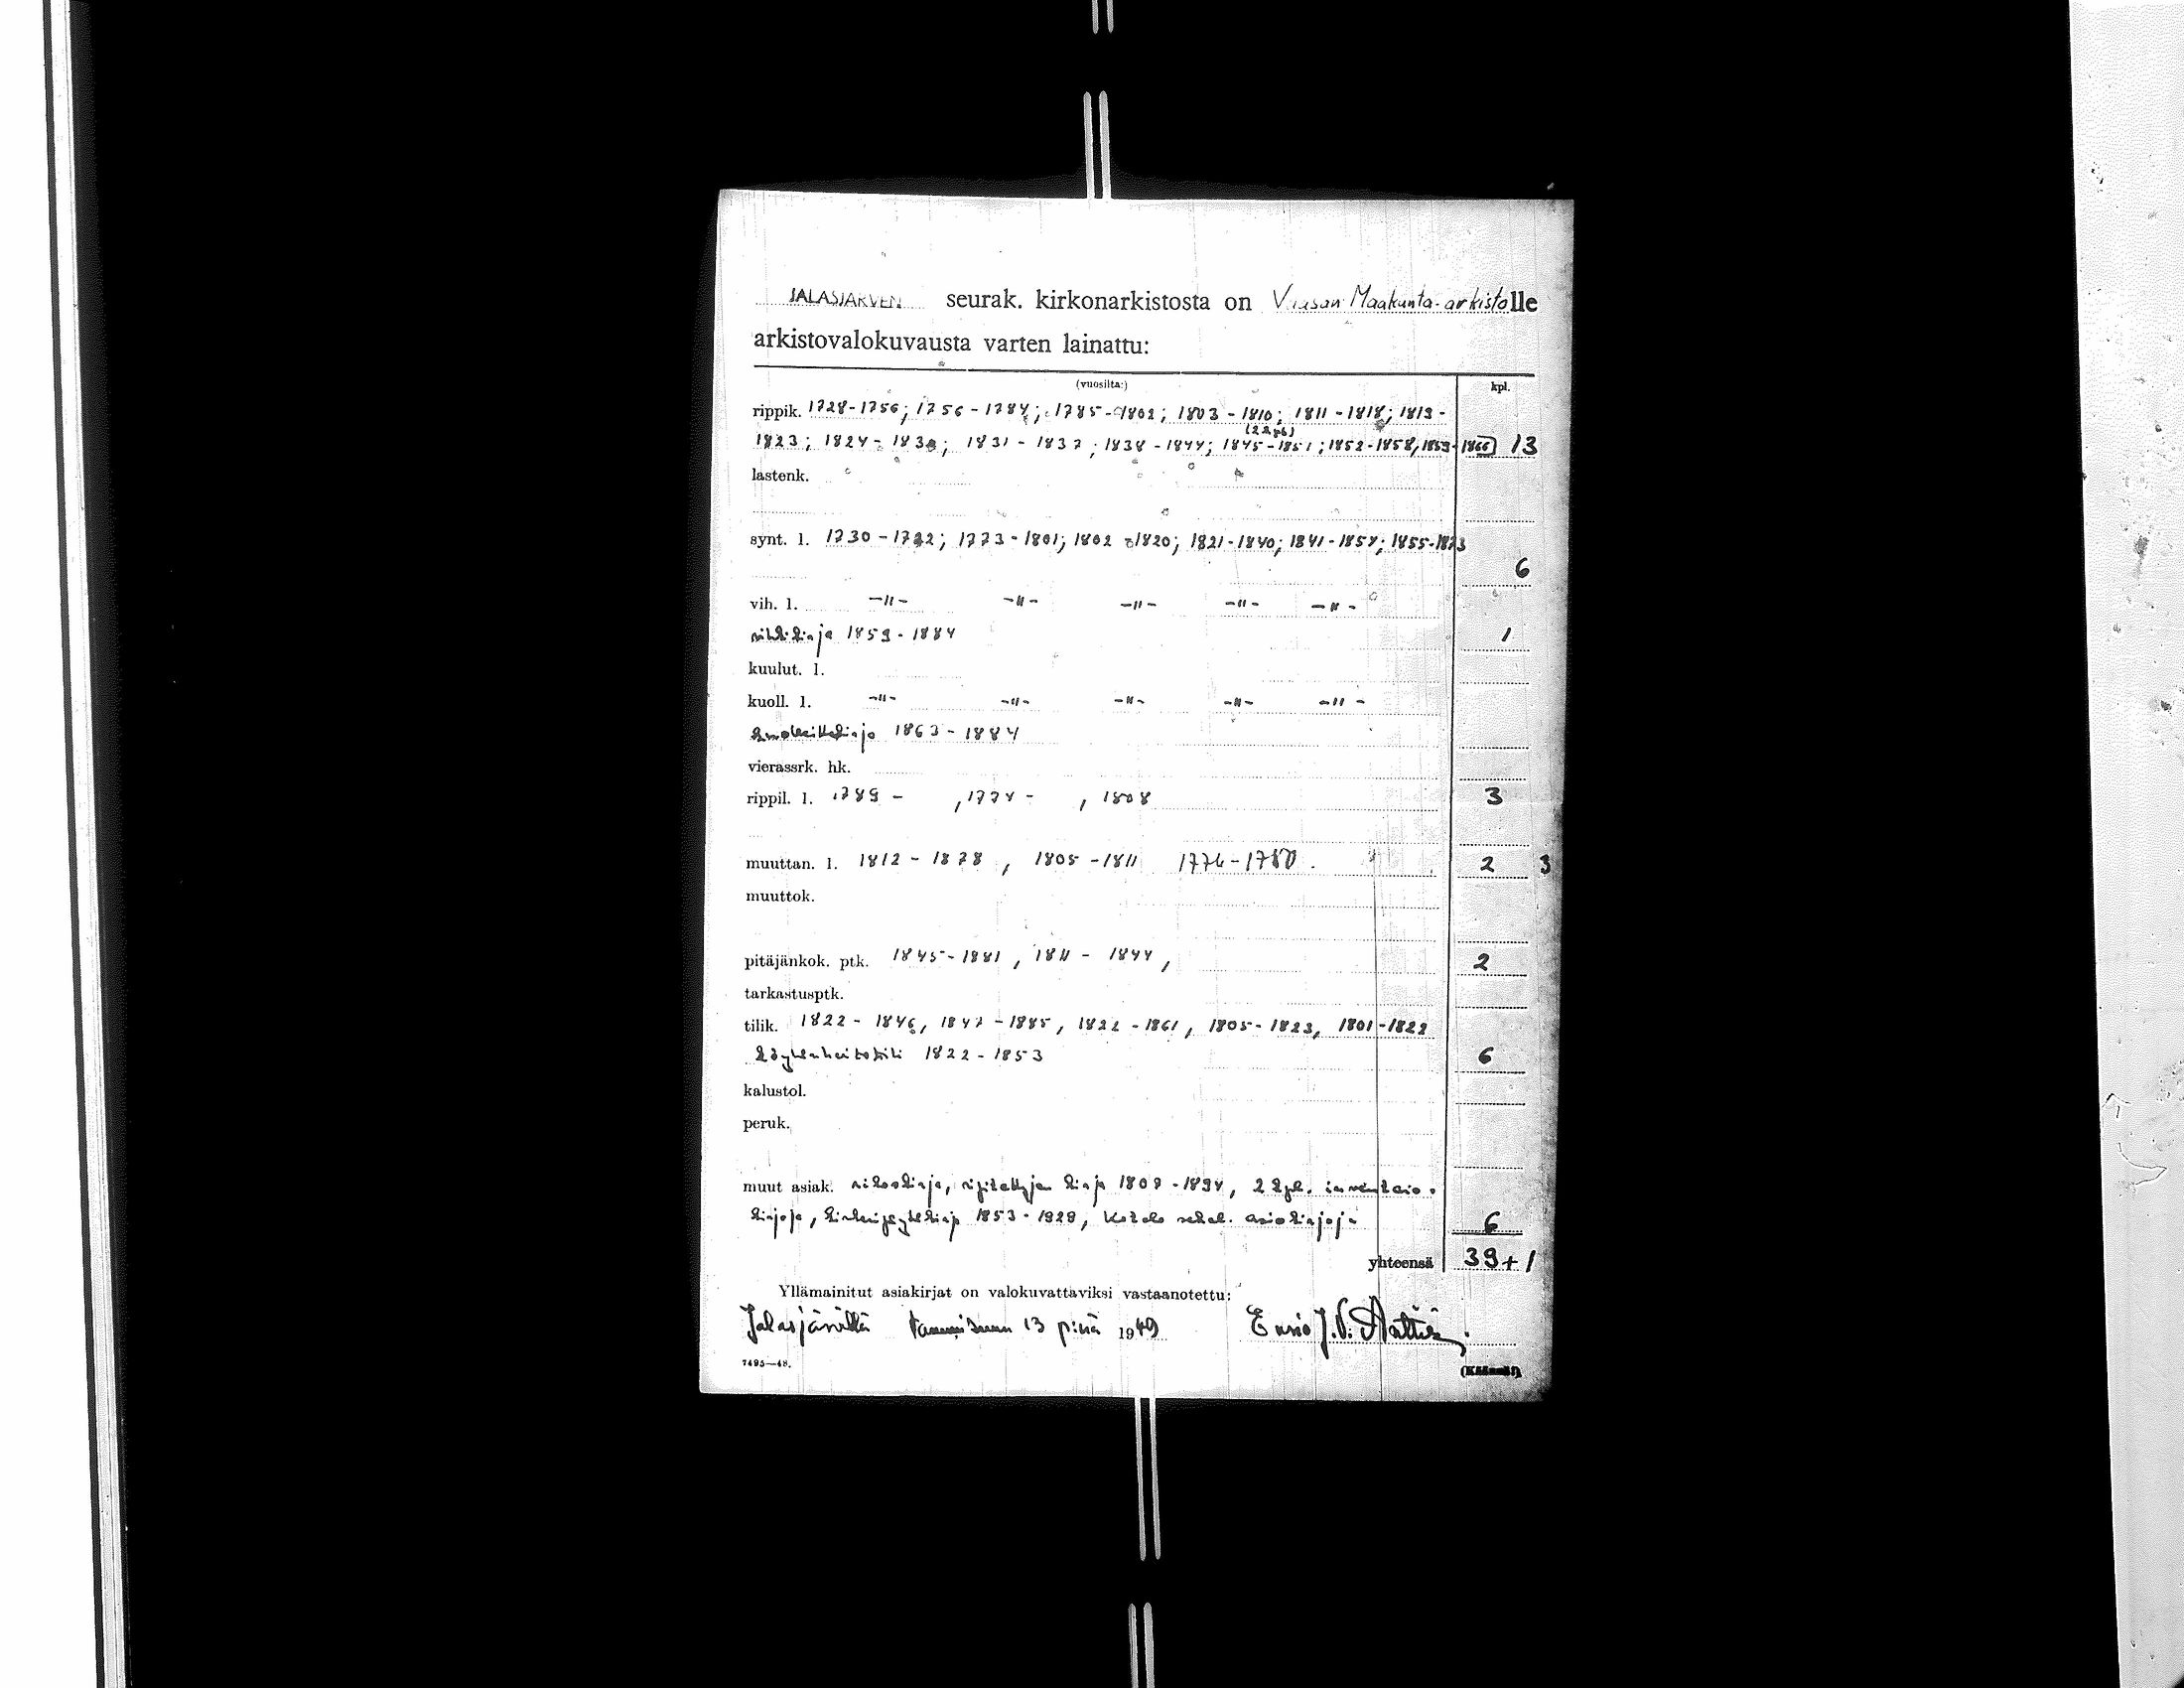 JALASJÄRVEN seurak. kirkonarkistosta on Vaasan Maakunta-arkistolle
arkistovalokuvausta varten lainattu:
(vuosilta:) kpl.
rippik. 1728-1756; 1756-1784; 1785-1802; 1803-1810; 1811-1818; 1813-
(2 kpl)
1823; 1824-1830; 1831-1837; 1838-1844; 1845-1851; 1852-1858, 1859-1866 13
lastenk.
synt. l. 1730-1772; 1773-1801; 1802-1820; 1821-1840; 1841-1854; 1855-1873
6
vih. l. -"- -"- -"- -"- -"-
vihkikirja 1859-1884 1
kuulut. l.
kuoll. l. -"- -"- -"- -"- -"-
1863-1884
vierassrk. hk.
rippil. l. 1789 - , 1774 - , 1808 3
muuttan. l. 1812-1878, 1805-1811 1774-1780. 2 3
muuttok.
pitäjänkok. ptk. 1845-1881, 1811-1844, 2
tarkastusptk.
tilik. 1822-1846, 1847-1885, 1822-1861, 1805-1823, 1801-1822
Köyhäinhoitotili 1822-1853 6
kalustol.
peruk.
muut asiak. sakkokirja, ripitettyjen kirja 1808-1894, 2 kpl. inventaio-
kirjoja, 1853-1929, sekal. asiakirjoja 6
yhteensä 39+1
Yllämainitut asiakirjat on valokuvattaviksi vastaanotettu:
Jalasjärvellä Tammikuun 13 p:nä 1949 Ensio J.V.
7495—48.
(Käännä!)